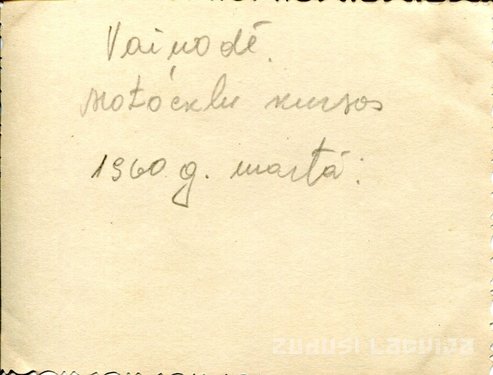 Vaiņodē.
Motócklu kursos
1960 g. martā.
ZUDUSI LATVIJA